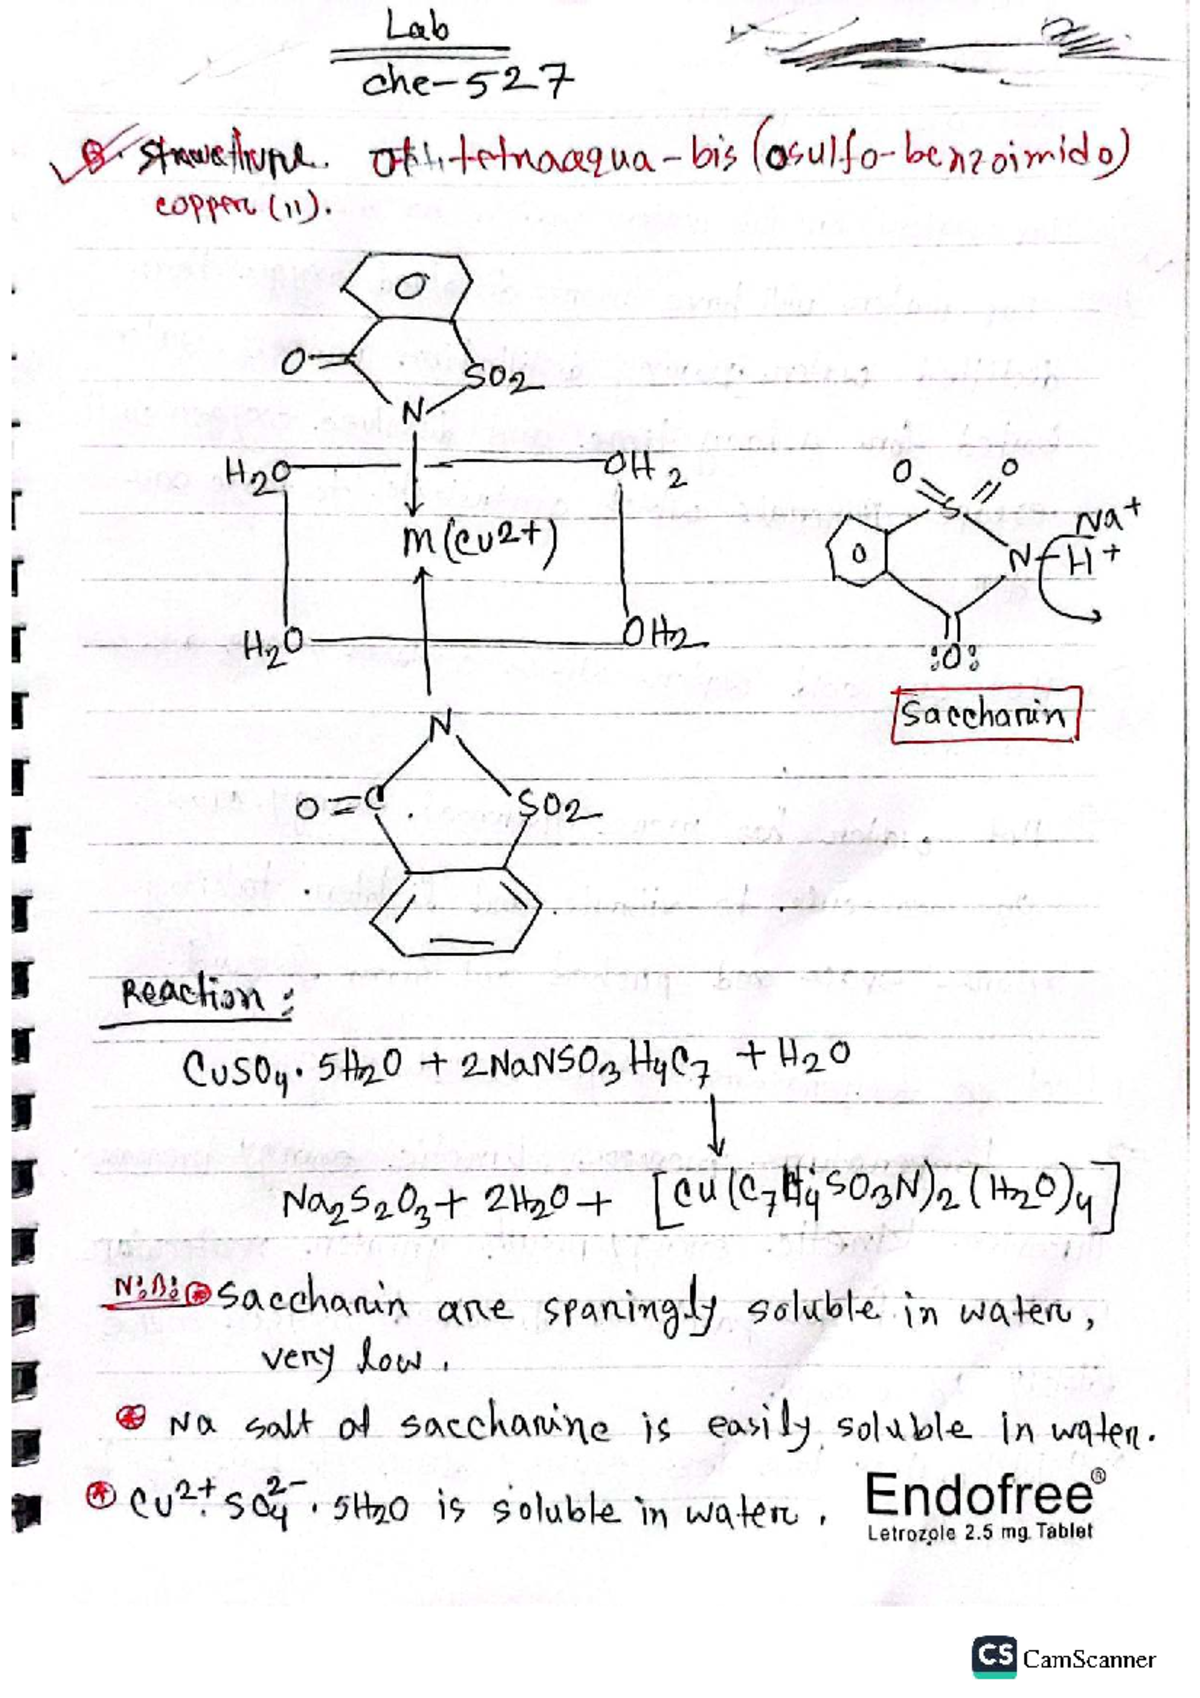 Lab
che-527
Structure of tetraaqua-bis(osulfo-benzoimido)
copper (11).
O
O= SO2
N
H2O OH2
M(Cu2+)
H2O OH2
N
O=C SO2
O O
S
Na+
O N H+
:O:
Saccharin
Reaction:
CuSO4·5H2O + 2NaNSO3H4C7 + H2O
↓
Na2S2O3 + 2H2O + [Cu(C7H4SO3N)2(H2O)4]
N:B: Saccharin are sparingly soluble in water,
very low.
Na salt of saccharine is easily soluble in water.
Cu2+. SO4 2-·5H2O is soluble in water.
Endofree®
Letrozole 2.5 mg Tablet
CS CamScanner